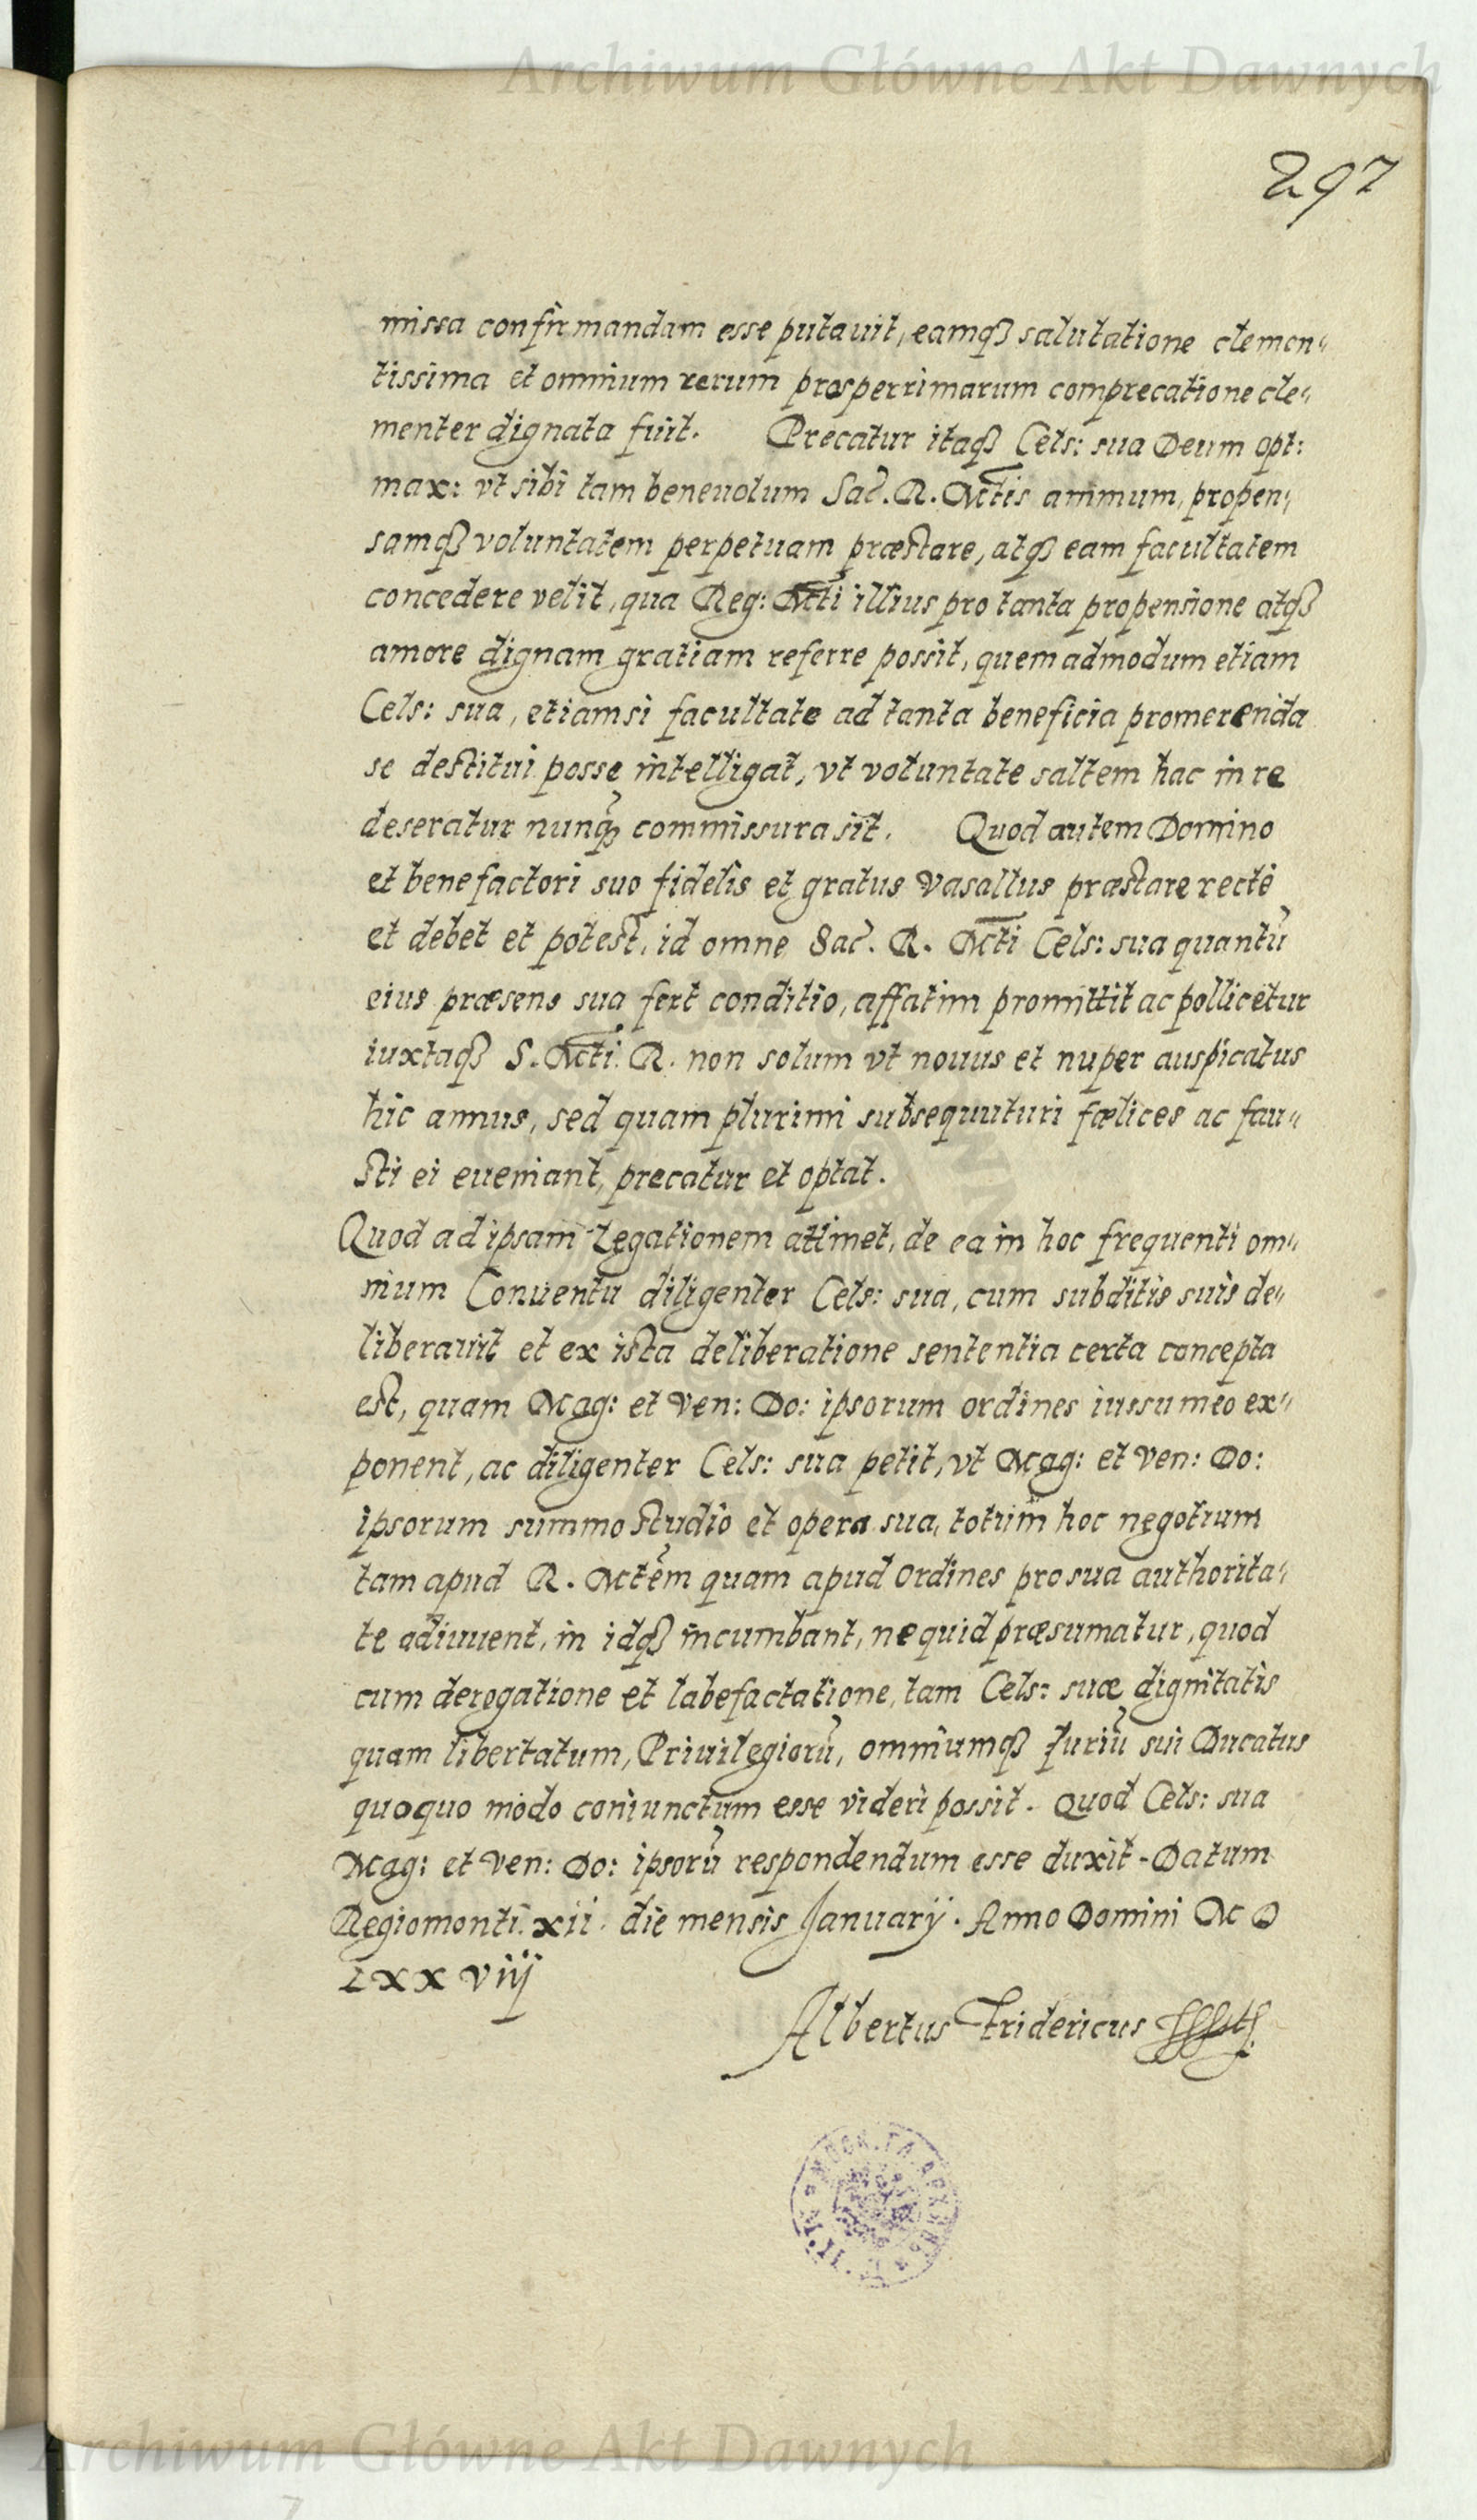 Archiwum Główne Akt Dawnych
297
missa confirmandam esse putauit, eamq₃ salutatione clemen„
tissima et omnium rerum prosperrimarum comprecatione cle„
menter dignata fuit. Precatur itaq₃ Cels: sua Deum opt:
max: vt sibi tam beneuolum Sac. R. Mtis animum, propen„
samq₃ voluntatem perpetuam præstare, atq₃ eam facultatem
concedere velit, qua Reg: Mti illius pro tanta propensione atq₃
amore dignam gratiam referre possit, quemadmodum etiam
Cels: sua, etiamsi facultate ad tanta beneficia promerenda
se destitui posse intelligat, vt voluntate saltem hac in re
deseratur nunq̃ commissura sit. Quod autem Domino
et benefactori suo fidelis et gratus vasallus præstare rectè
et debet et potest, id omne Sac. R. Mti Cels: sua quantũ
eius præsens sua fert conditio, affatim promittit ac pollicetur
iuxtaq₃ S. Mti. R. non solum vt nouus et nuper auspicatus
hic annus, sed quam plurimi subsequuturi fœlices ac fau„
sti ei eueniant, precatur et optat.
Quod ad ipsam Legationem attinet, de ea in hoc frequenti om„
nium Conuentu diligenter Cels: sua, cum subditis suis de„
liberauit et ex ista deliberatione sententia certa concepta
est, quam Mag: et Ven: Do: ipsorum ordines iussu meo ex„
ponent, ac diligenter Cels: sua petit, vt Mag: et Ven: Do:
ipsorum summo studio et opera sua, totum hoc negotium
tam apud R. Mtem quam apud Ordines pro sua authorita„
te adiuuent, in idq₃ incumbant, ne quid præsumatur, quod
cum derogatione et labefactatione, tam Cels: suæ dignitatis
quam libertatum, Priuilegiorũ, omniumq₃ Juriũ sui Ducatus
quoquo modo coniunctum esse videri possit. Quod Cels: sua
Mag: et Ven: Do: ipsorũ respondendum esse duxit - Datum
Regiomonti. xii. die mensis Januarij. Anno Domini M D
LXX viij
Albertus Fridericus
Archiwum Główne Akt Dawnych